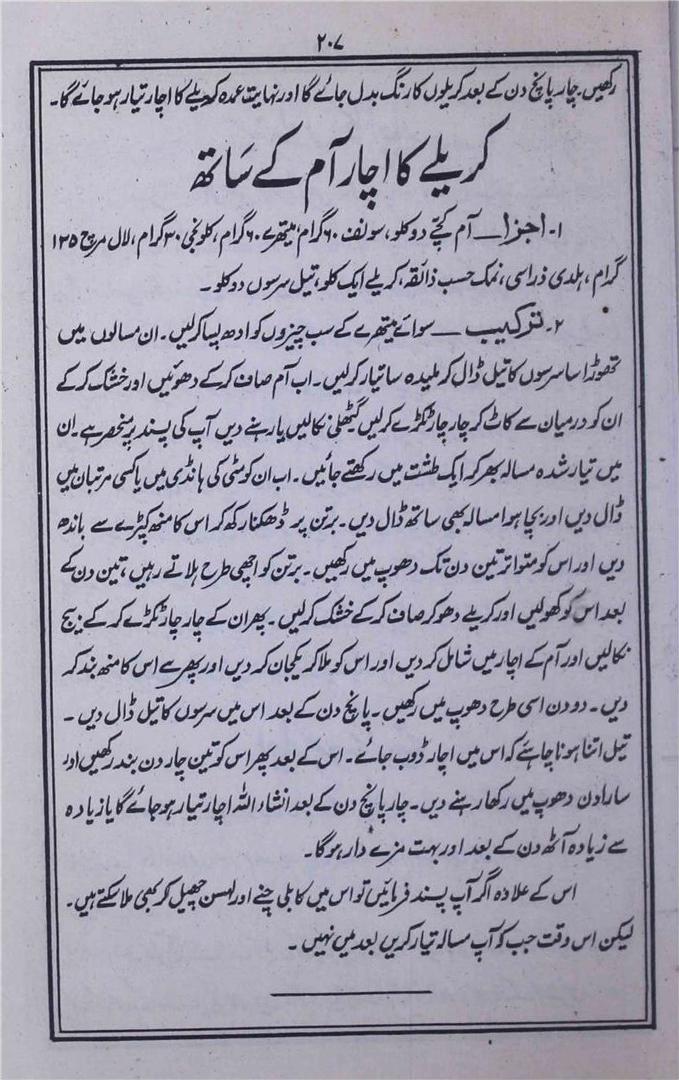 ۲۰۷
رکھیں۔ چار پانچ دن کے بعد کریلوں کا رنگ بدل جائے گا اور نہایت عمدہ کریلے کا اچار تیار ہو جائے گا۔
کریلے کا اچار آم کے ساتھ
۱۔ اجزا — آم کچے دو کلو، سونف ۶۰ گرام، میتھرے ۶۰ گرام، کلونجی ۳۰ گرام، لال مرچ ۱۲۵
گرام، ہلدی ذراسی، نمک حسب ذائقہ، کریلے ایک کلو، تیل سرسوں دو کلو۔
۲۔ ترکیب — سوائے میتھرے کے سب چیزوں کو ادھ پسا کر لیں۔ ان مسالوں میں
تھوڑا سا سرسوں کا تیل ڈال کر ملیدہ سا تیار کر لیں۔ اب آم صاف کر کے دھوئیں اور خشک کر کے
ان کو درمیان سے کاٹ کر چار چار ٹکڑے کر لیں گٹھلی نکالیں یا رہنے دیں آپ کی پسند پر منحصر ہے۔ ان
میں تیار شدہ مسالہ بھر کر ایک طشت میں رکھتے جائیں۔ اب ان کو مٹی کی ہانڈی میں یا کسی مرتبان میں
ڈال دیں اور بچا ہوا مسالہ بھی ساتھ ڈال دیں۔ برتن پر ڈھکنا رکھ کر اس کا منھ کپڑے سے باندھ
دیں اور اس کو متواتر تین دن تک دھوپ میں رکھیں۔ برتن کو اچھی طرح ہلاتے رہیں، تین دن کے
بعد اس کو کھولیں اور کریلے دھو کر صاف کر کے خشک کر لیں۔ پھر ان کے چار چار ٹکڑے کر کے بیج
نکالیں اور آم کے اچار میں شامل کر دیں اور اس کو ملا کر یکجان کر دیں اور پھر سے اس کا منھ بند کر
دیں۔ دو دن اسی طرح دھوپ میں رکھیں۔ پانچ دن کے بعد اس میں سرسوں کا تیل ڈال دیں۔
تیل اتنا ہونا چاہئے کہ اس میں اچار ڈوب جائے۔ اس کے بعد پھر اس کو تین چار دن بند رکھیں اور
سارا دن دھوپ میں رکھا رہنے دیں۔ چار پانچ دن کے بعد انشاء اللہ اچار تیار ہو جائے گا یا زیادہ
سے زیادہ آٹھ دن کے بعد اور بہت مزے دار ہو گا۔
اس کے علاوہ اگر آپ پسند فرمائیں تو اس میں کابلی چنے اور لہسن چھیل کر بھی ملا سکتے ہیں۔
لیکن اس وقت جب کو آپ مسالہ تیار کریں بعد میں نہیں۔